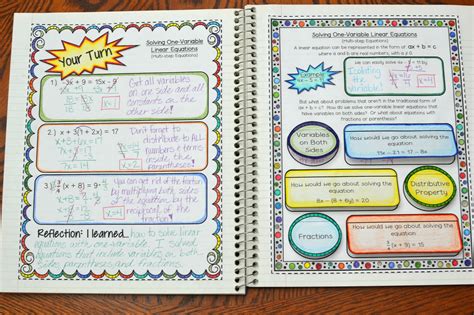 Your Turn
Solving One-Variable
Linear Equations
(Multi-step Equations)
1.) 3x + 9 = 15x - 9
Get all variables
on one side and all
constants on the
other side
2.) x + 3(1 + 2x) = 17
Don't forget to
distribute to ALL
numbers & terms
inside the
parentheses!
x=2
(x + 8) = 9
You can get rid of the factor
by multiplying both sides
of the equation by the
reciprocal of the
factor.
x=4
Reflection: I learned... how to solve linear
equations with one-variable. I solved
equations that include variables on both
sides, parentheses and fractions.
Solving One-Variable Linear Equations
(Multi-step Equations)
A linear equation can be represented in the form of ax + b = c,
where a, b, and c are real numbers.
Example
But what about problems that aren't in the traditional form of
ax + b = c? How do we solve one-variable linear equations that
have variables on both sides? Or what about equations with
fractions or parentheses?
Variables
on Both
Sides
How would we go about solving the
equation:
How would we go about solving the
equation:
8x - (8 + 6x) = 20
Distributive
Property
Fractions
How would we go about solving the
equation:
(x + 8) = 15